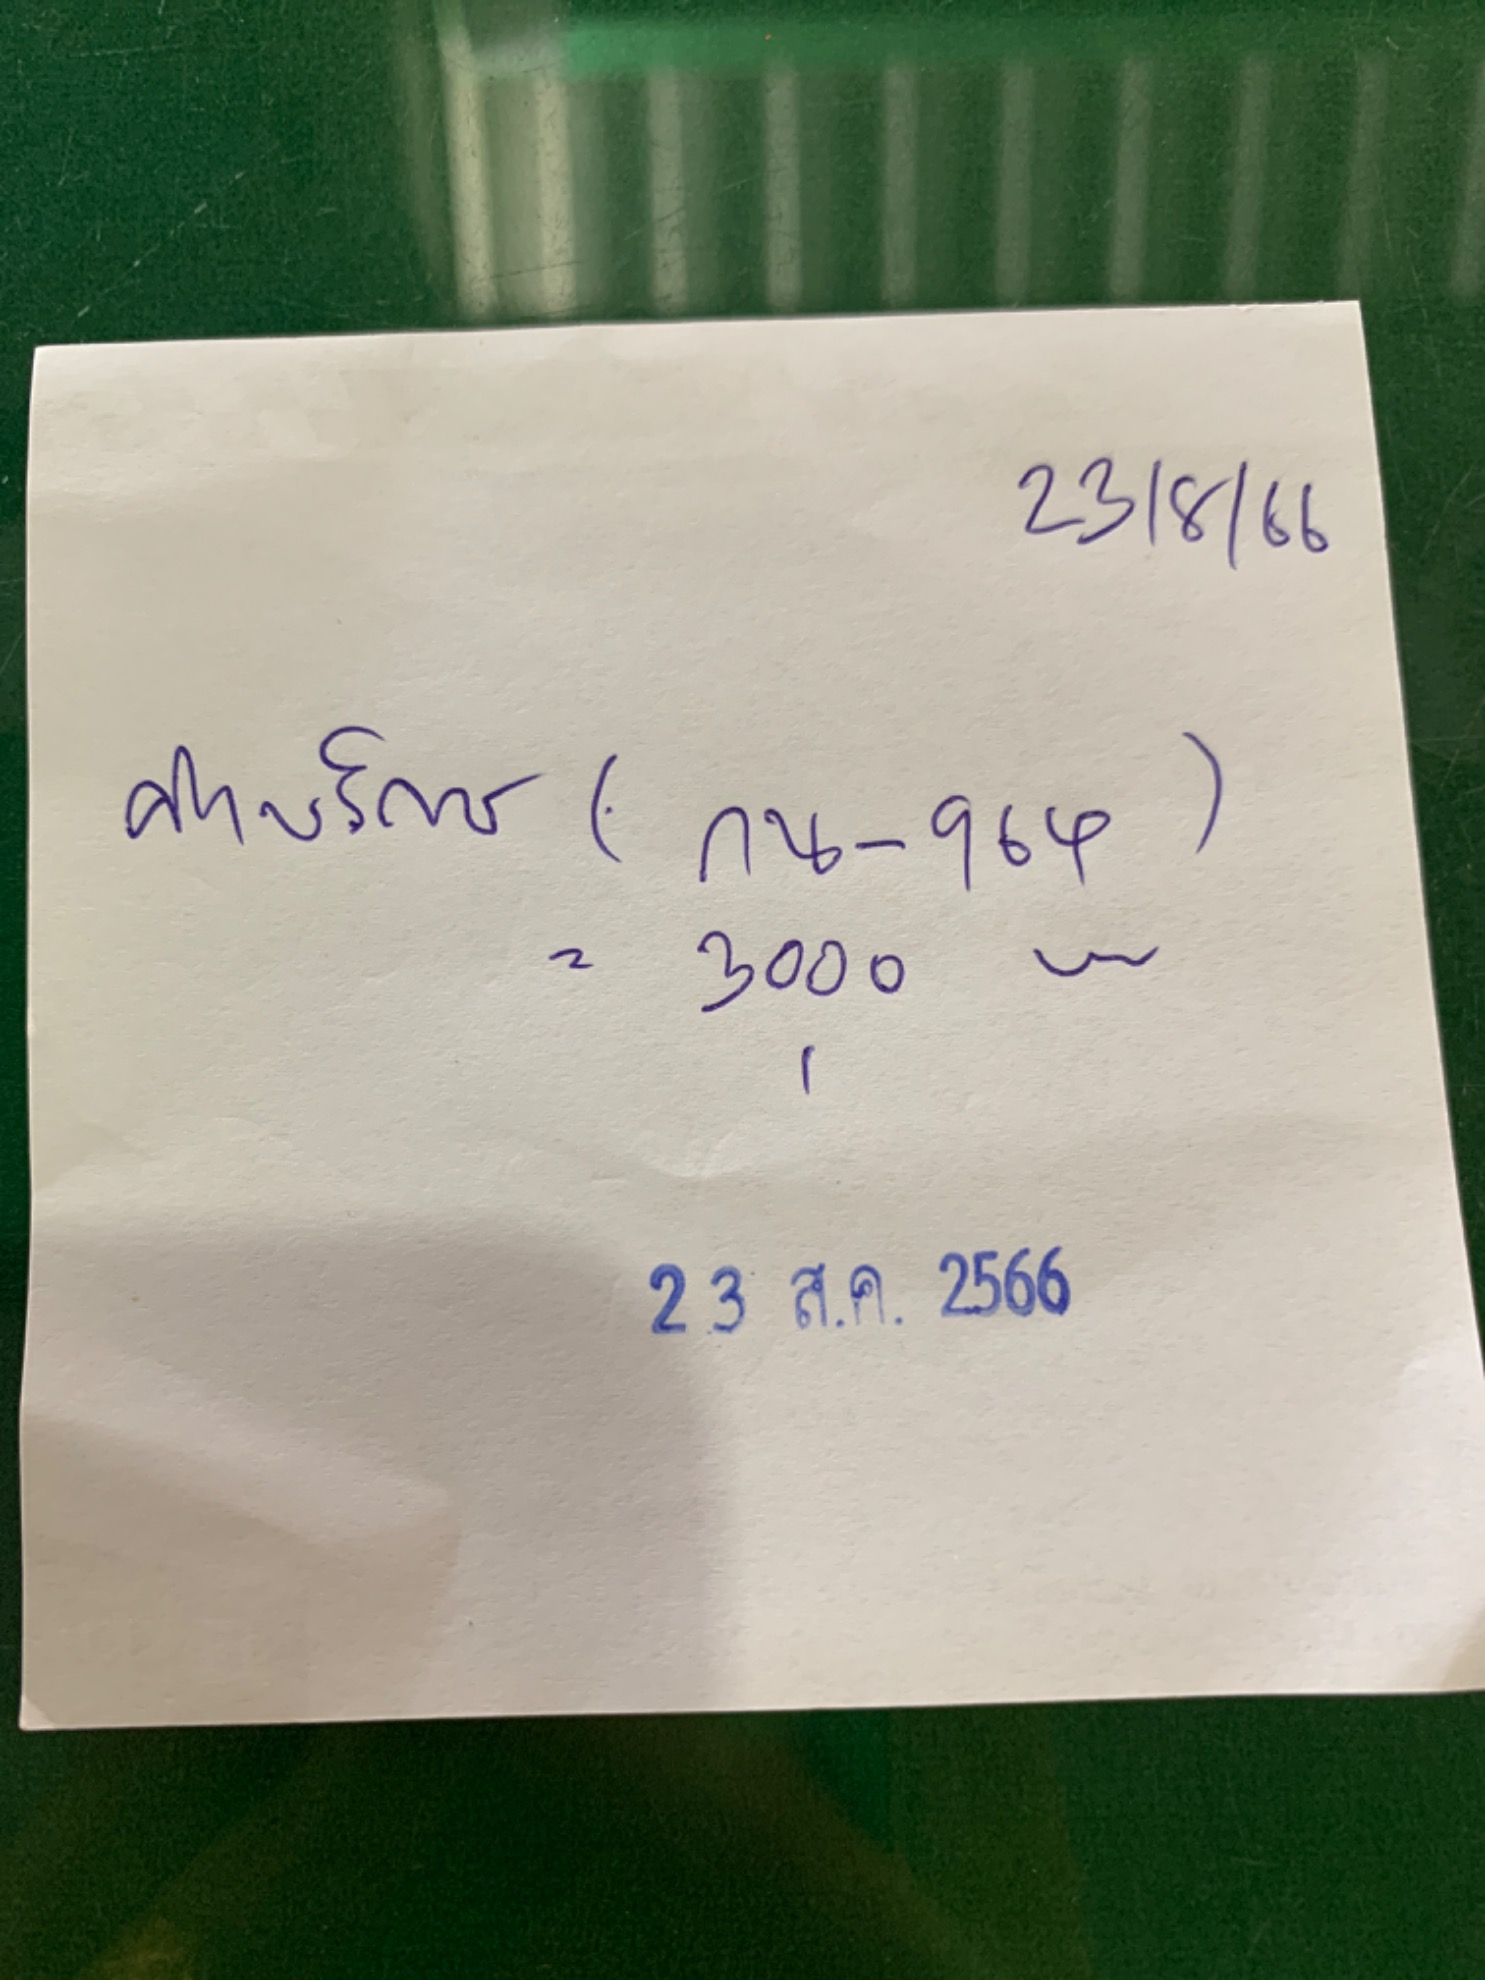 23/8/66
ค่าบริการ ( กน-964 )
= 3000 บาท
23 ส.ค. 2566